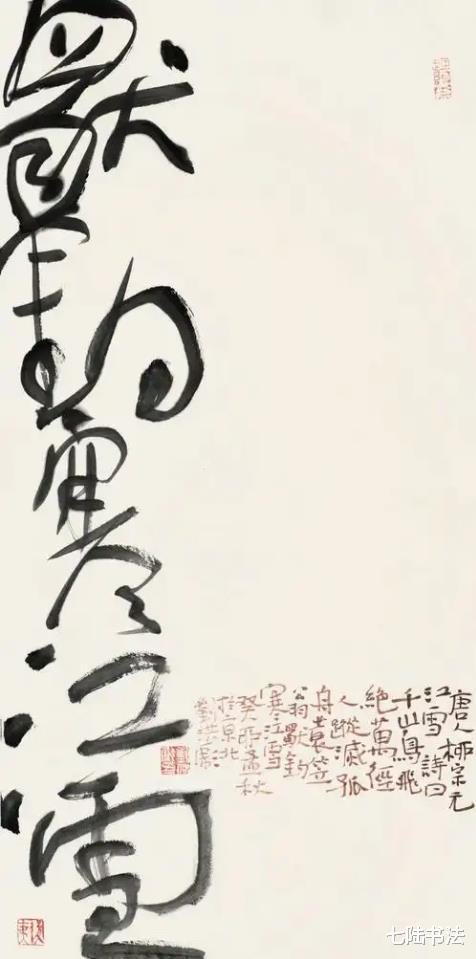 獨釣寒江雪
唐人柳宗元
江雪詩曰
千山鳥飛
絕萬徑
人蹤滅孤
舟蓑笠
翁獨釣
寒江雪
癸酉孟秋
於京北
劉洪彪
七陆书法